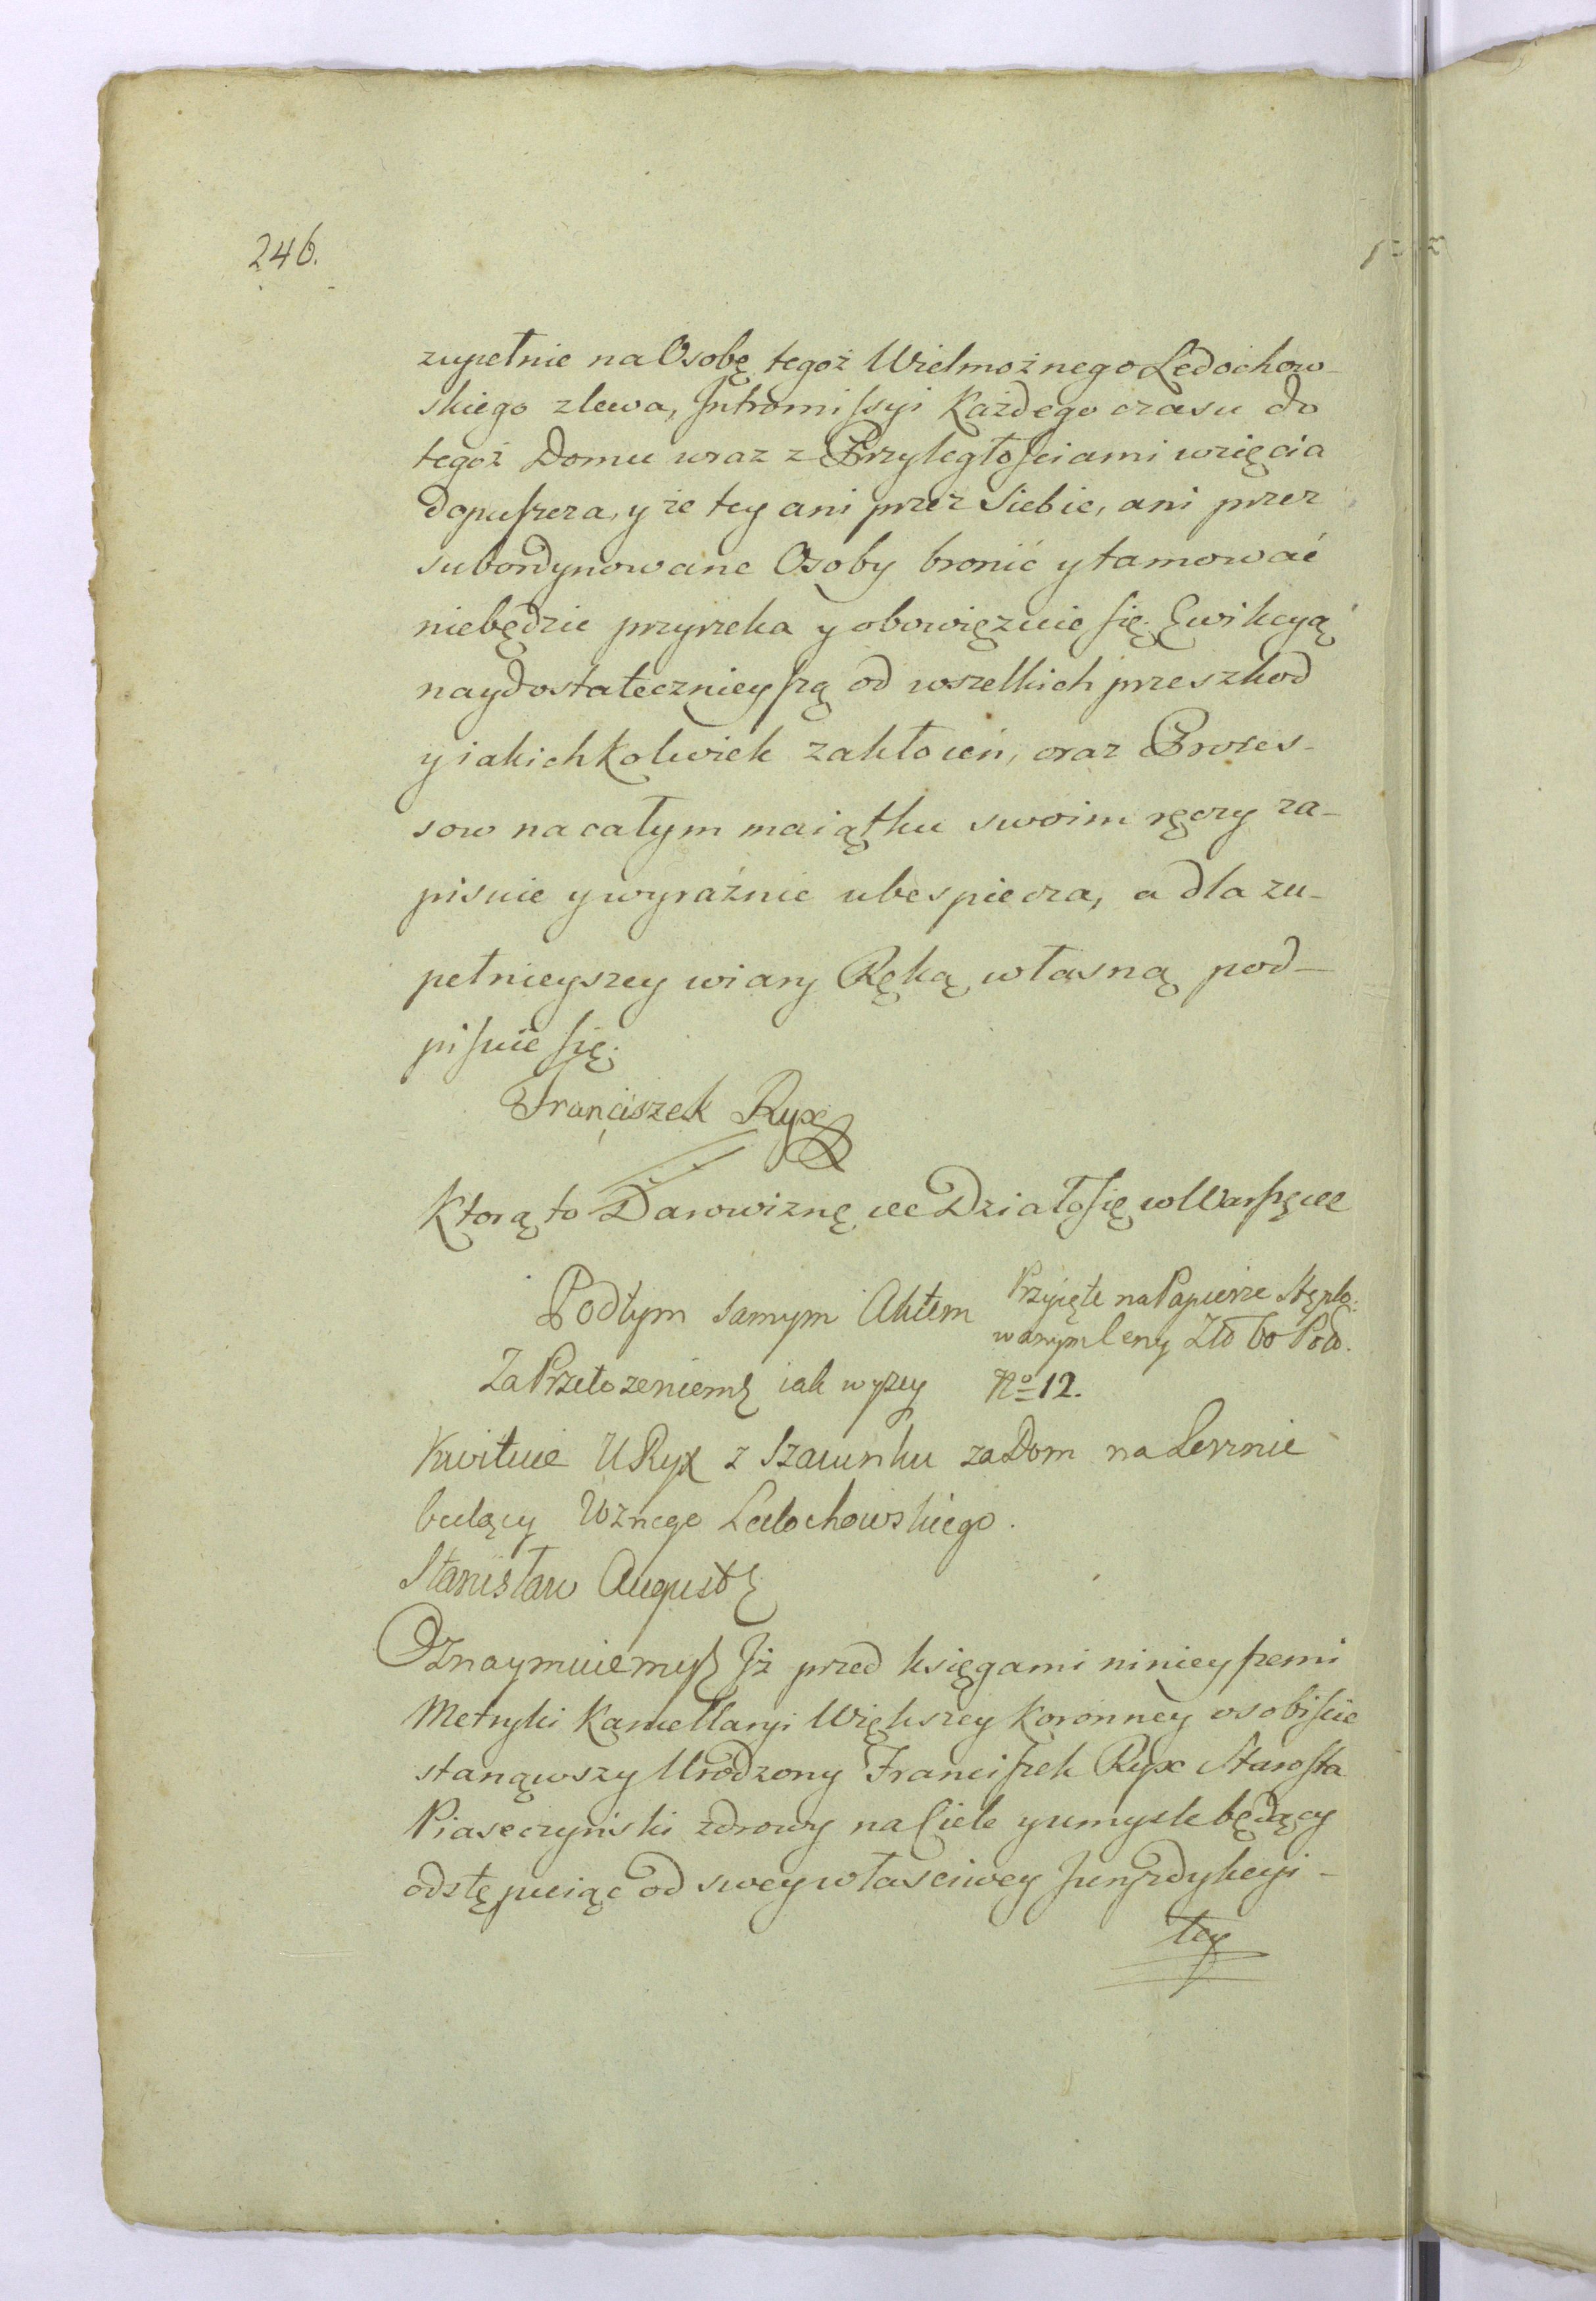 246.
zupełnie na Osobę tegoż Wielmożnego Ledochow-
skiego zlewa, Intromissyi Każdego czasu do
tegoż Domu wraz z Przyległościami wzięcia
dopuszcza, y że tey ani przez siebie, ani przez
subordynowane Osoby bronić y tamować
niebędzie przyrzeka y obowięzuie się. Ewikcyą
naydostatecznieyszą od wszelkich przeszkod
y iakichkolwiek zakłoceń, oraz Proces-
sow na całym maiątku swoim ręczy za-
pisuie y wyraźnie ubespiecza, a dla zu-
pełnieyszey wiary Ręką własną pod-
pisuie się.
Franciszek Ryx
Ktorą to Darowiznę etc Działo się w Warszawie
Podtym samym Aktem
Przyięte na Papierze Stęplo:
wanym Ceny Zło 60 Pod.
Za Przełożeniem iak wyzey No 12.
Kwituie U Ryx z Szacunku za Dom na Lesznie
będący Wznego Ledochowskiego.
Stanisław August
Oznaymuiemy Iż przed księgami ninieyszemi
Metryki Kancellaryi Większey Koronney osobiście
stanąwszy Urodzony Franciszek Ryx Starosta
Piaseczyński zdrowy na Ciele y umysle będący
odstępuiąc od swey własciwey Juryzdykcyi-
tey